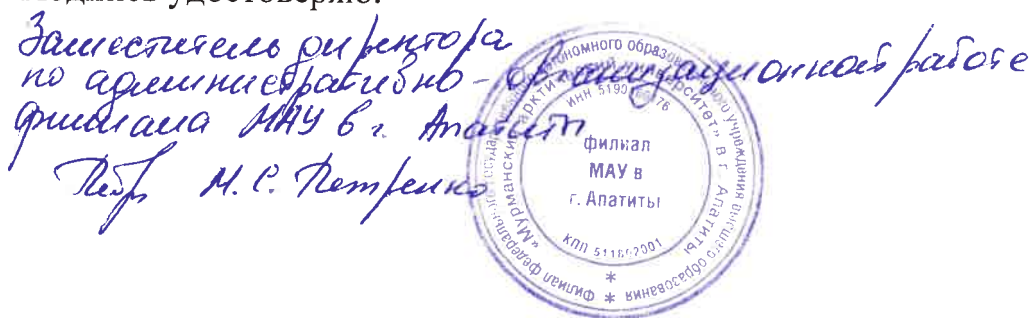 Подпись удостоверяю:
Заместитель директора
по административно-организационной работе
филиала МАУ в г. Апатиты
М.С. Петренко
филиал
МАУ в
г. Апатиты
Филиал федерального государственного автономного образовательного учреждения высшего образования
«Мурманский арктический университет» в г. Апатиты
ИНН 5190
КПП 511802001